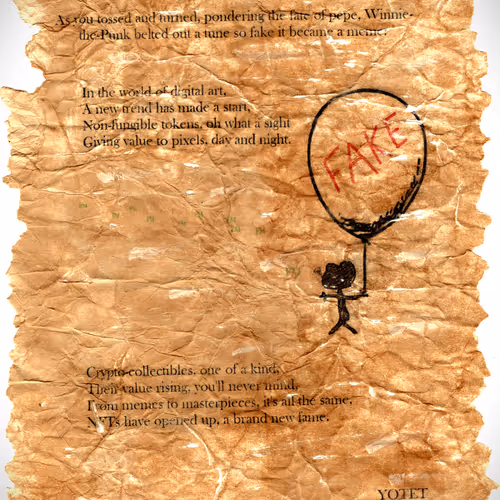 As you tossed and turned, pondering the fate of pepe, Winnie-
the-Punk belted out a tune so fake it became a meme:
In the world of digital art,
A new trend has made a start,
Non-fungible tokens, oh what a sight
Giving value to pixels, day and night.
FAKE
Crypto-collectibles, one of a kind,
Their value rising, you'll never mind,
From memes to masterpieces, it's all the same,
NFTs have opened up, a brand new fame.
YOTET